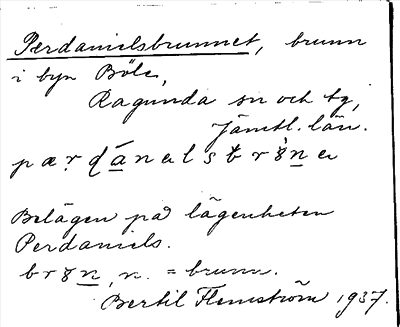 Perdanielsbrunnet, brunn
i byn Böle,
Ragunda sn och tg,
Jämtl. län.
Belägen på lägenheten
Perdaniels.
n. = brunn.
Bertil Flemström 1937.